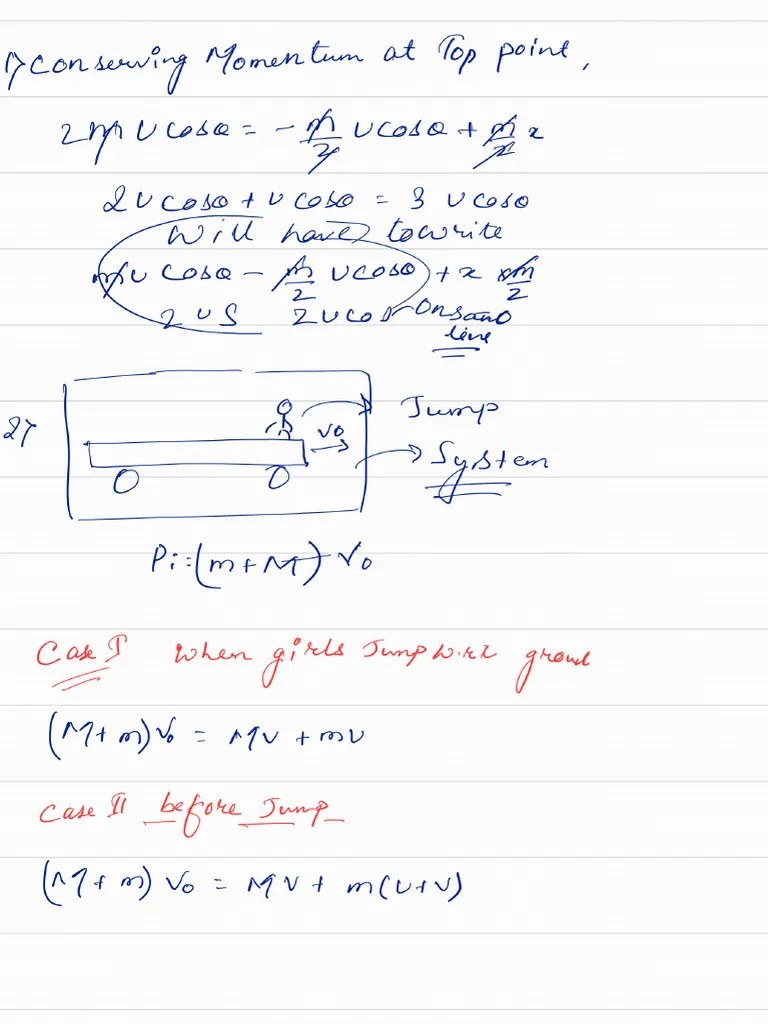 1) Conserving Momentum at Top point,
2m u cosθ = - m/2 u cosθ + m/2 x
2 u cosθ + u cosθ = 3 u cosθ
Will have to write
m u cosθ - m/2 u cosθ + x m/2
2 u S 2 u cos on same
line
2)
V0
Jump
System
Pi = (m+M) V0
Case I When girls Jump w.r.t ground
(M+m)V0 = Mv + mu
Case II before Jump
(M+m) V0 = Mv + m(u+v)